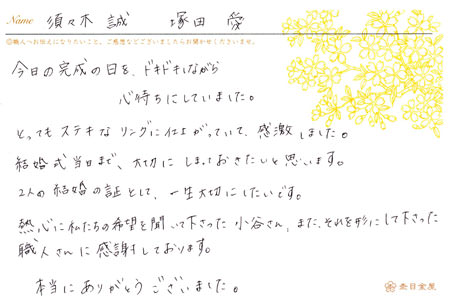 Name 須々木 誠 塚田 愛
◎職人へお伝えになりたいこと、ご感想などございましたらお聞かせくださいませ。
今日の完成の日を、ドキドキしながら
心待ちにしていました。
とってもステキなリングに仕上がっていて、感激しました。
結婚式当日まで、大切にしまっておきたいと思います。
2人の結婚の証として、一生大切にしたいです。
熱心に私たちの希望を聞いて下さった小谷さん、また、それを形にして下さった
職人さんに感謝しております。
本当にありがとうございました。
杢目金屋